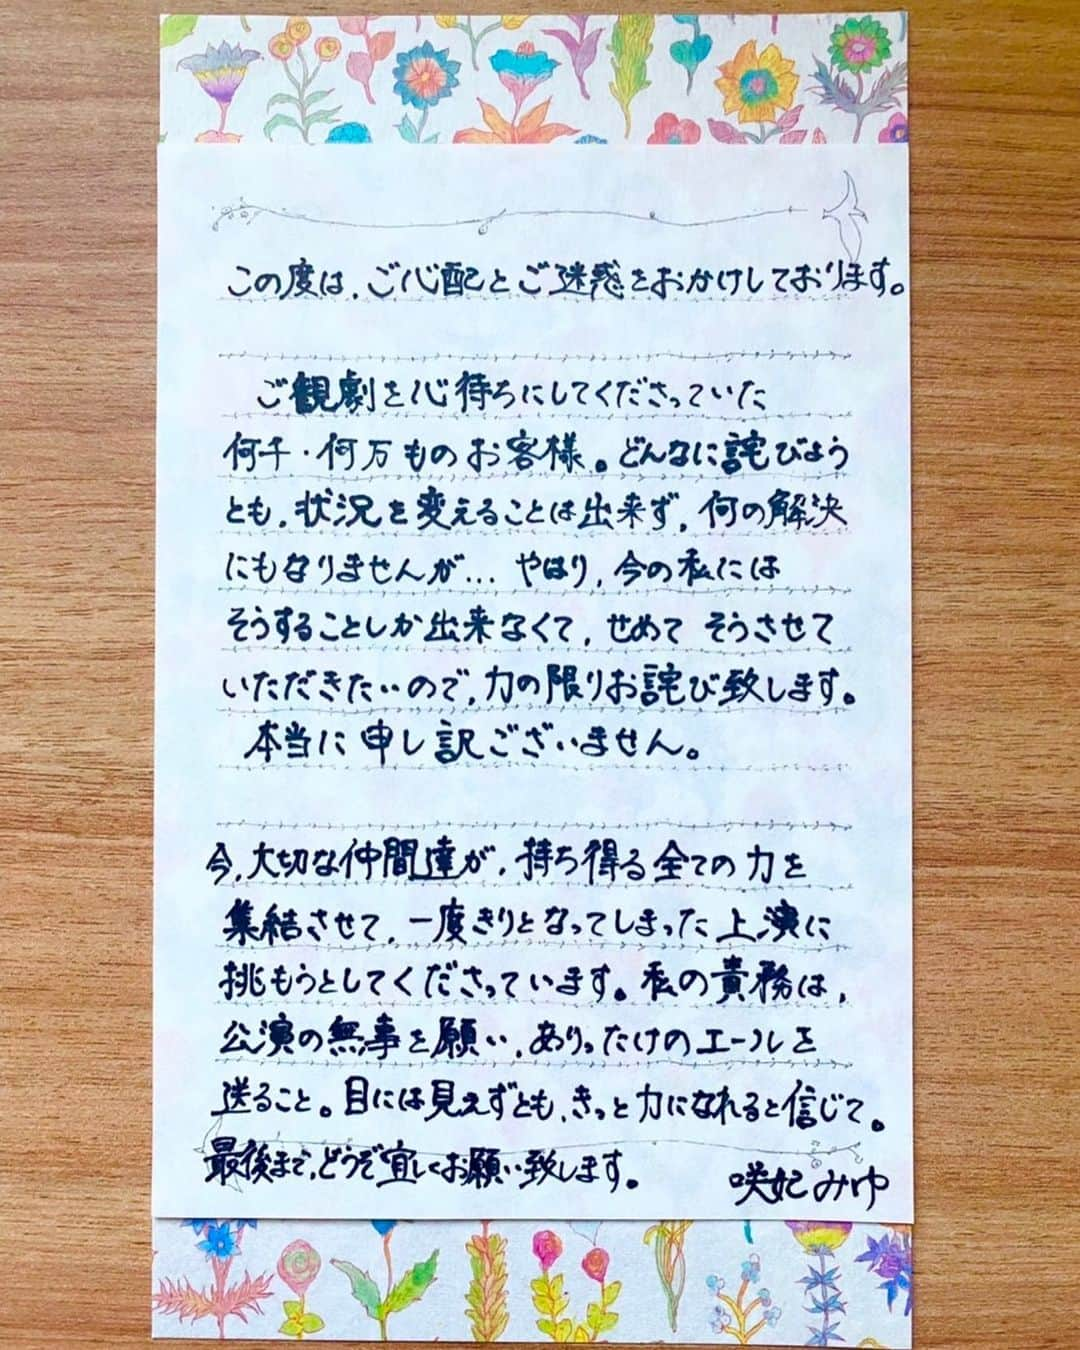 この度は、ご心配とご迷惑をおかけしております。
ご観劇を心待ちにしてくださっていた
何千・何万ものお客様。どんなに詫びよう
とも、状況を変えることは出来ず、何の解決
にもなりませんが… やはり、今の私には
そうすることしか出来なくて、せめて そうさせて
いただきたいので、力の限りお詫び致します。
本当に申し訳ございません。
今、大切な仲間達が、持ち得る全ての力を
集結させて、一度きりとなってしまった上演に
挑もうとしてくださっています。私の責務は、
公演の無事を願い、ありったけのエールを
送ること。目には見えずとも、きっと力になれると信じて。
最後まで、どうぞ宜しくお願い致します。
咲妃みゆ